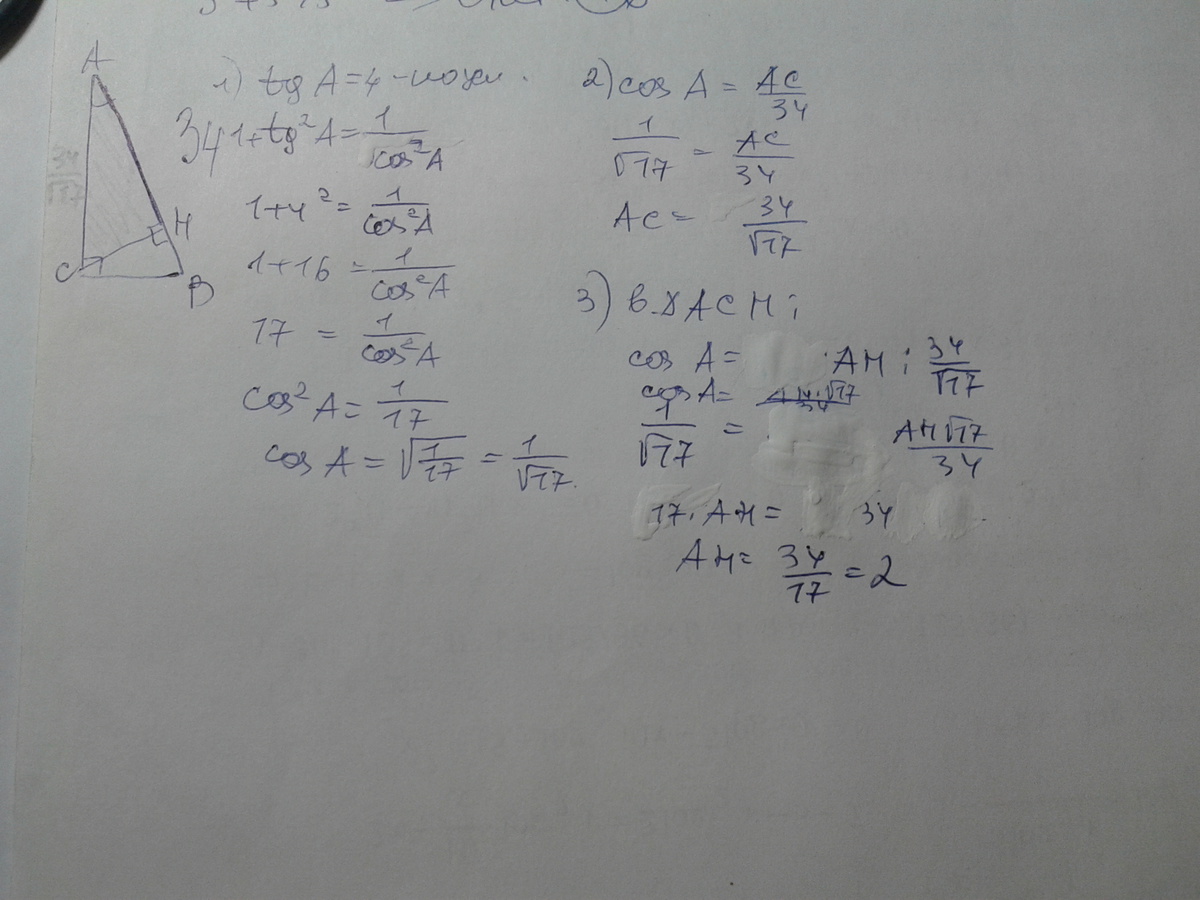 A
34
34
√17
C
H
B
1) tg A = 4 -
1+tg²A = 1/cos²A
1+4² = 1/cos²A
1+16 = 1/cos²A
17 = 1/cos²A
cos²A = 1/17
cos A = √(1/17) = 1/√17.
2) cos A = AC/34
1/√17 = AC/34
AC = 34/√17
3) в △ACH:
cos A = AH : 34/√17
cos A =
1/√17 = AH√17/34
17·AH = 34
AH = 34/17 = 2